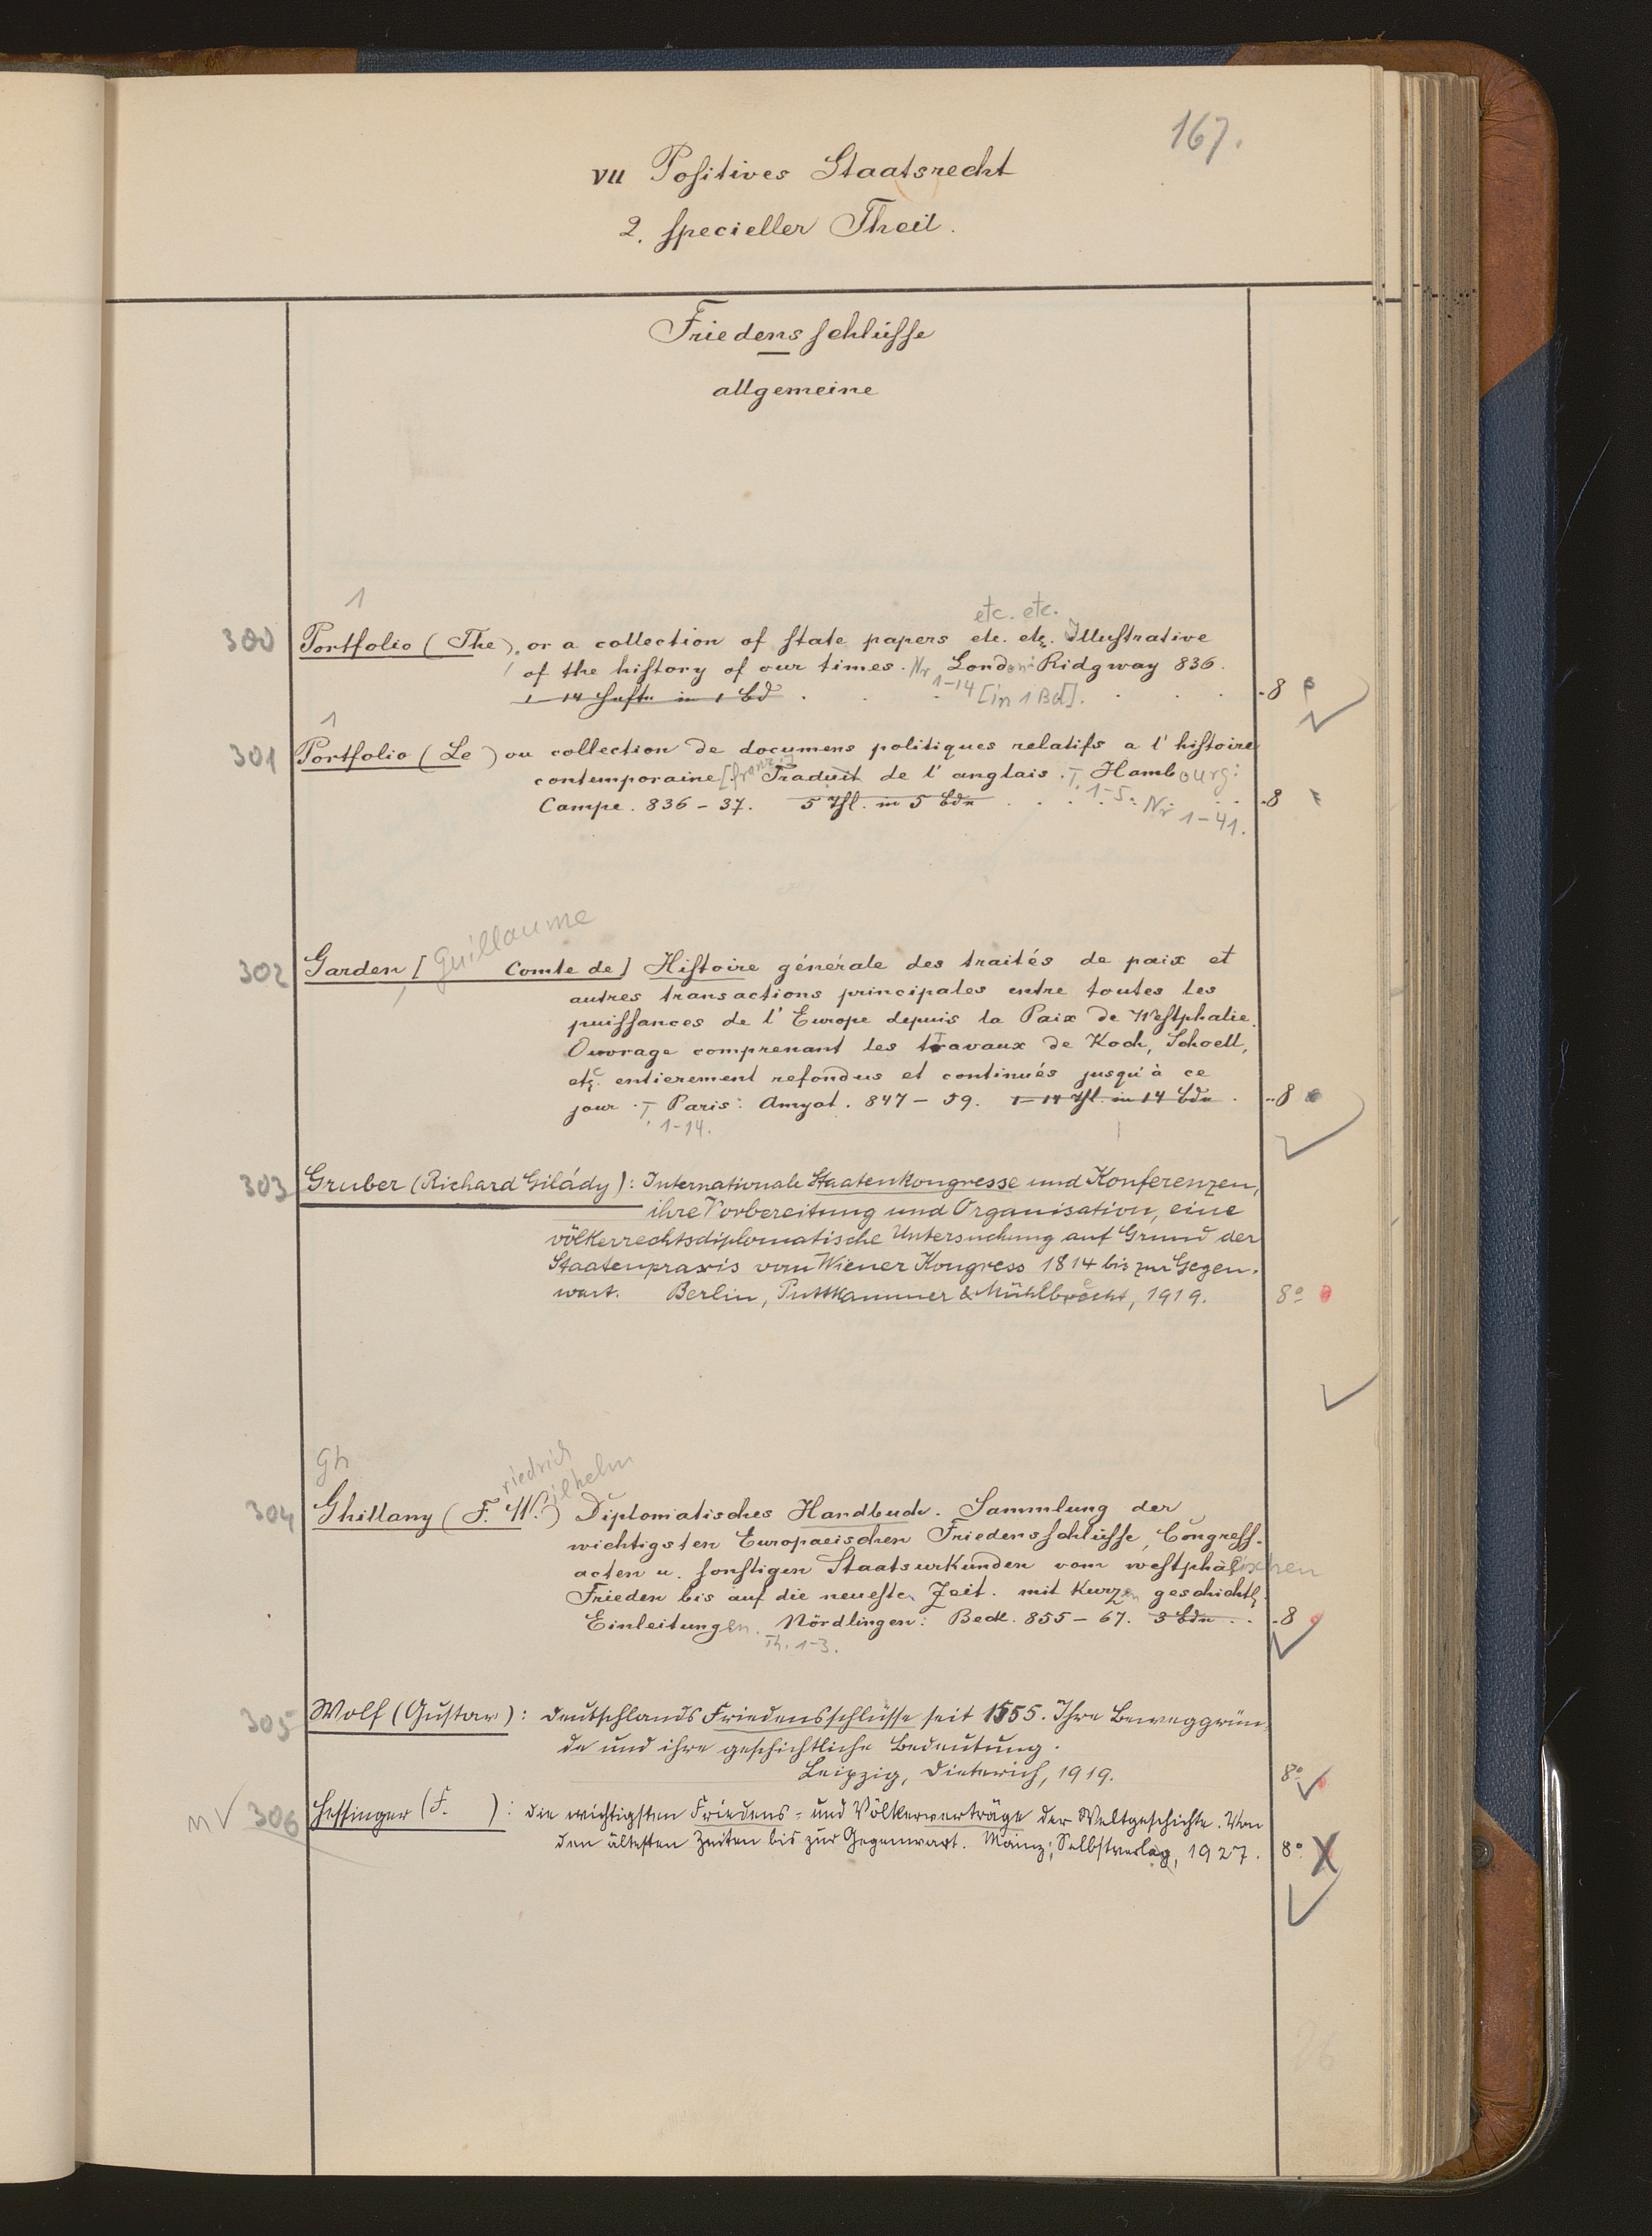 167.
VII Positives Staatsrecht
2. specieller Theil.
Friedensschlüsse
allgemeine
1
etc. etc.
300 Portfolio (The), or a collection of state papers etc. etc. Illustrative
of the history of our times. Nr 1-14 [in 1 Bd]. London: Ridgway 836.
1-14 Hefte in 1 Bd . . . . . . . 8
1
301 Portfolio (Le) ou collection de documens politiques relatifs a l'histoire
contemporaine [franz.] Traduit de l'anglais. T. 1-5. Nr 1-41. Hambourg:
Campe. 836-37. 5 Thl. in 5 Bdn . . . . . . 8
Guillaume
302 Garden [Comte de] Histoire générale des traités de paix et
autres transactions principales entre toutes les
puissances de l'Europe depuis la Paix de Westphalie.
Ouvrage comprenant les travaux de Koch, Schoell,
etc. entierement refondus et continués jusqu'à ce
jour. T. 1-14. Paris: Amyot. 847-59. 1-14 Thl. in 14 Bdn . . . 8
303 Gruber (Richard Gilády): Internationale Staatenkongresse und Konferenzen,
ihre Vorbereitung und Organisation, eine
völkerrechtsdiplomatische Untersuchung auf Grund der
Staatenpraxis vom Wiener Kongress 1814 bis zur Gegen-
wart. Berlin, Puttkammer & Mühlbrecht, 1919. 8°
Gh
riedrich ilhelm
304 Ghillany (F. W.) Diplomatisches Handbuch. Sammlung der
wichtigsten Europaeischen Friedensschlüsse, Congress-
acten u. sonstigen Staatsurkunden vom westphälischen
Frieden bis auf die neueste Zeit. mit kurzen geschichtl.
Einleitungen. Th. 1-3. Nördlingen: Beck. 855-67. 3 Bdn . . . 8
305 Wolf (Gustav): Deutschlands Friedensschlüsse seit 1555. Ihre Beweggrün-
de und ihre geschichtliche Bedeutung.
Leipzig, Dieterich, 1919. 8°
nV 306 Hessinger (F. ): Die wichtigsten Friedens- und Völkerverträge der Weltgeschichte. Von
den ältesten Zeiten bis zur Gegenwart. Mainz, Selbstverlag, 1927. 8°